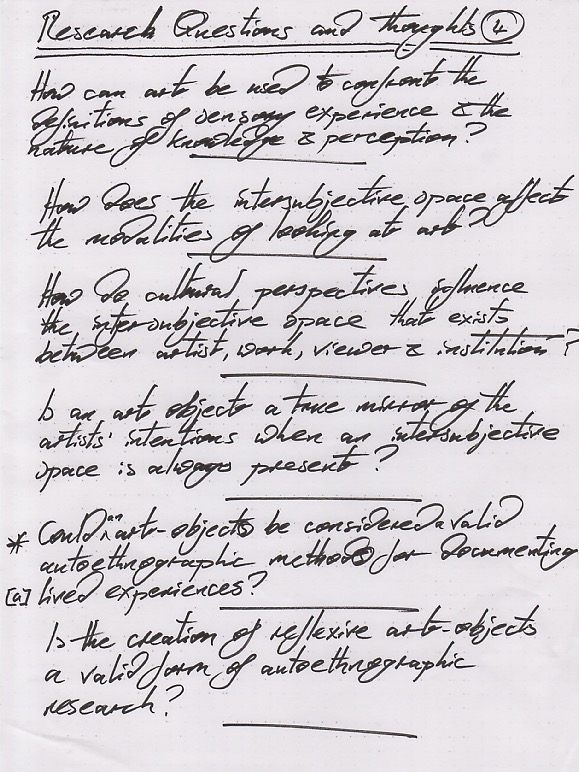 Research Questions and Thoughts 4
How can art be used to confront the
definitions of sensory experience & the
nature of knowledge & perception?
How does the intersubjective space affect
the modalities of looking at art?
How do cultural perspectives influence
the intersubjective space that exists
between artist, work, viewer & institution?
Is an art object a true mirror of the
artists' intentions when an intersubjective
space is always present?
* Could an art-objects be considered a valid
autoethnographic methods for documenting
[a] lived experiences?
Is the creation of reflexive art-objects
a valid form of autoethnographic
research?